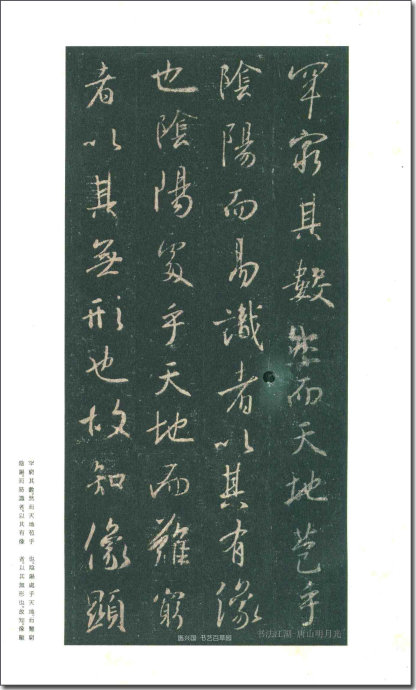 罕窮其數然而天地苞乎
陰陽而易識者以其有像
也陰陽處乎天地而難窮
者以其無形也故知像顯
罕窮其數然而天地苞乎
陰陽而易識者以其有像
也陰陽處乎天地而難窮
者以其無形也故知像顯
唐兴国·书艺百草园
书法江湖·唐山明月光